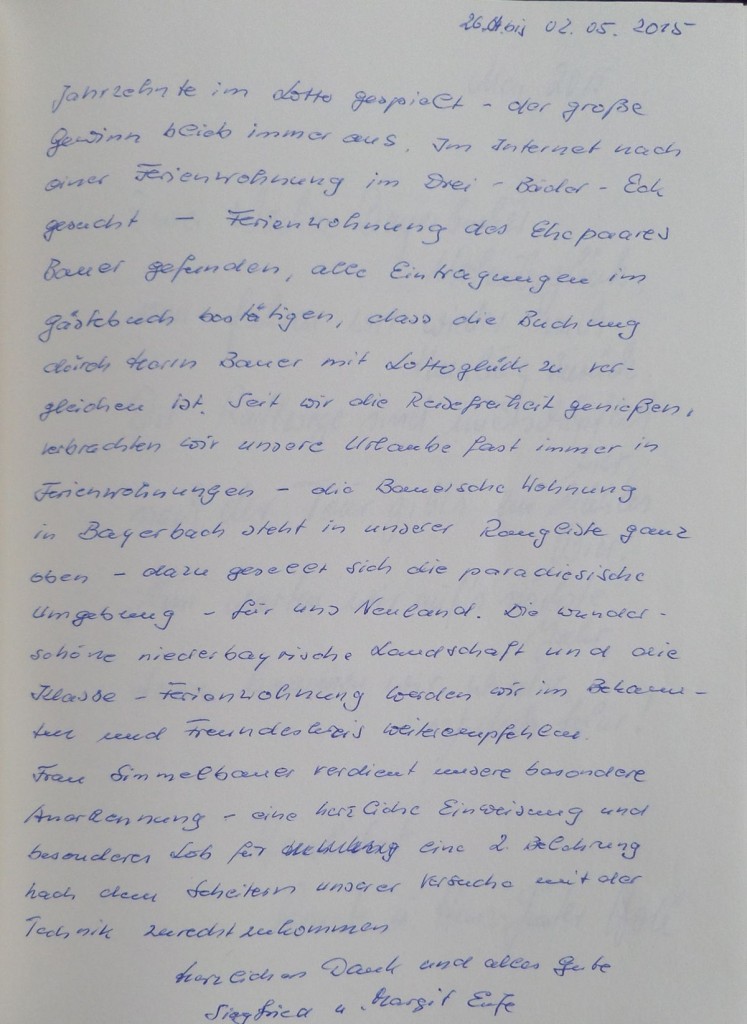 26.04. bis 02.05.2015
Jahrzehnte im Lotto gespielt - der große
Gewinn blieb immer aus. Im Internet nach
einer Ferienwohnung im Drei - Bäder - Eck
gesucht - Ferienwohnung des Ehepaares
Bauer gefunden, alle Eintragungen im
Gästebuch bestätigen, dass die Buchung
durch Herrn Bauer mit Lottoglück zu ver-
gleichen ist. Seit wir die Reisefreiheit genießen,
verbrachten wir unsere Urlaube fast immer in
Ferienwohnungen - die Bauersche Wohnung
in Bayerbach steht in unserer Rangliste ganz
oben - dazu gesellt sich die paradiesische
Umgebung - für uns Neuland. Die wunder-
schöne niederbayrische Landschaft und die
Klasse - Ferienwohnung werden wir im Bekann-
ten und Freundeskreis weiterempfehlen.
Frau Simmelbauer verdient unsere besondere
Anerkennung - eine herzliche Einweisung und
besonderes Lob für eine 2. Belehrung
nach dem Scheitern unserer Versuche mit der
Technik zurechtzukommen
Herzlichen Dank und alles Gute
Siegfried u. Margit